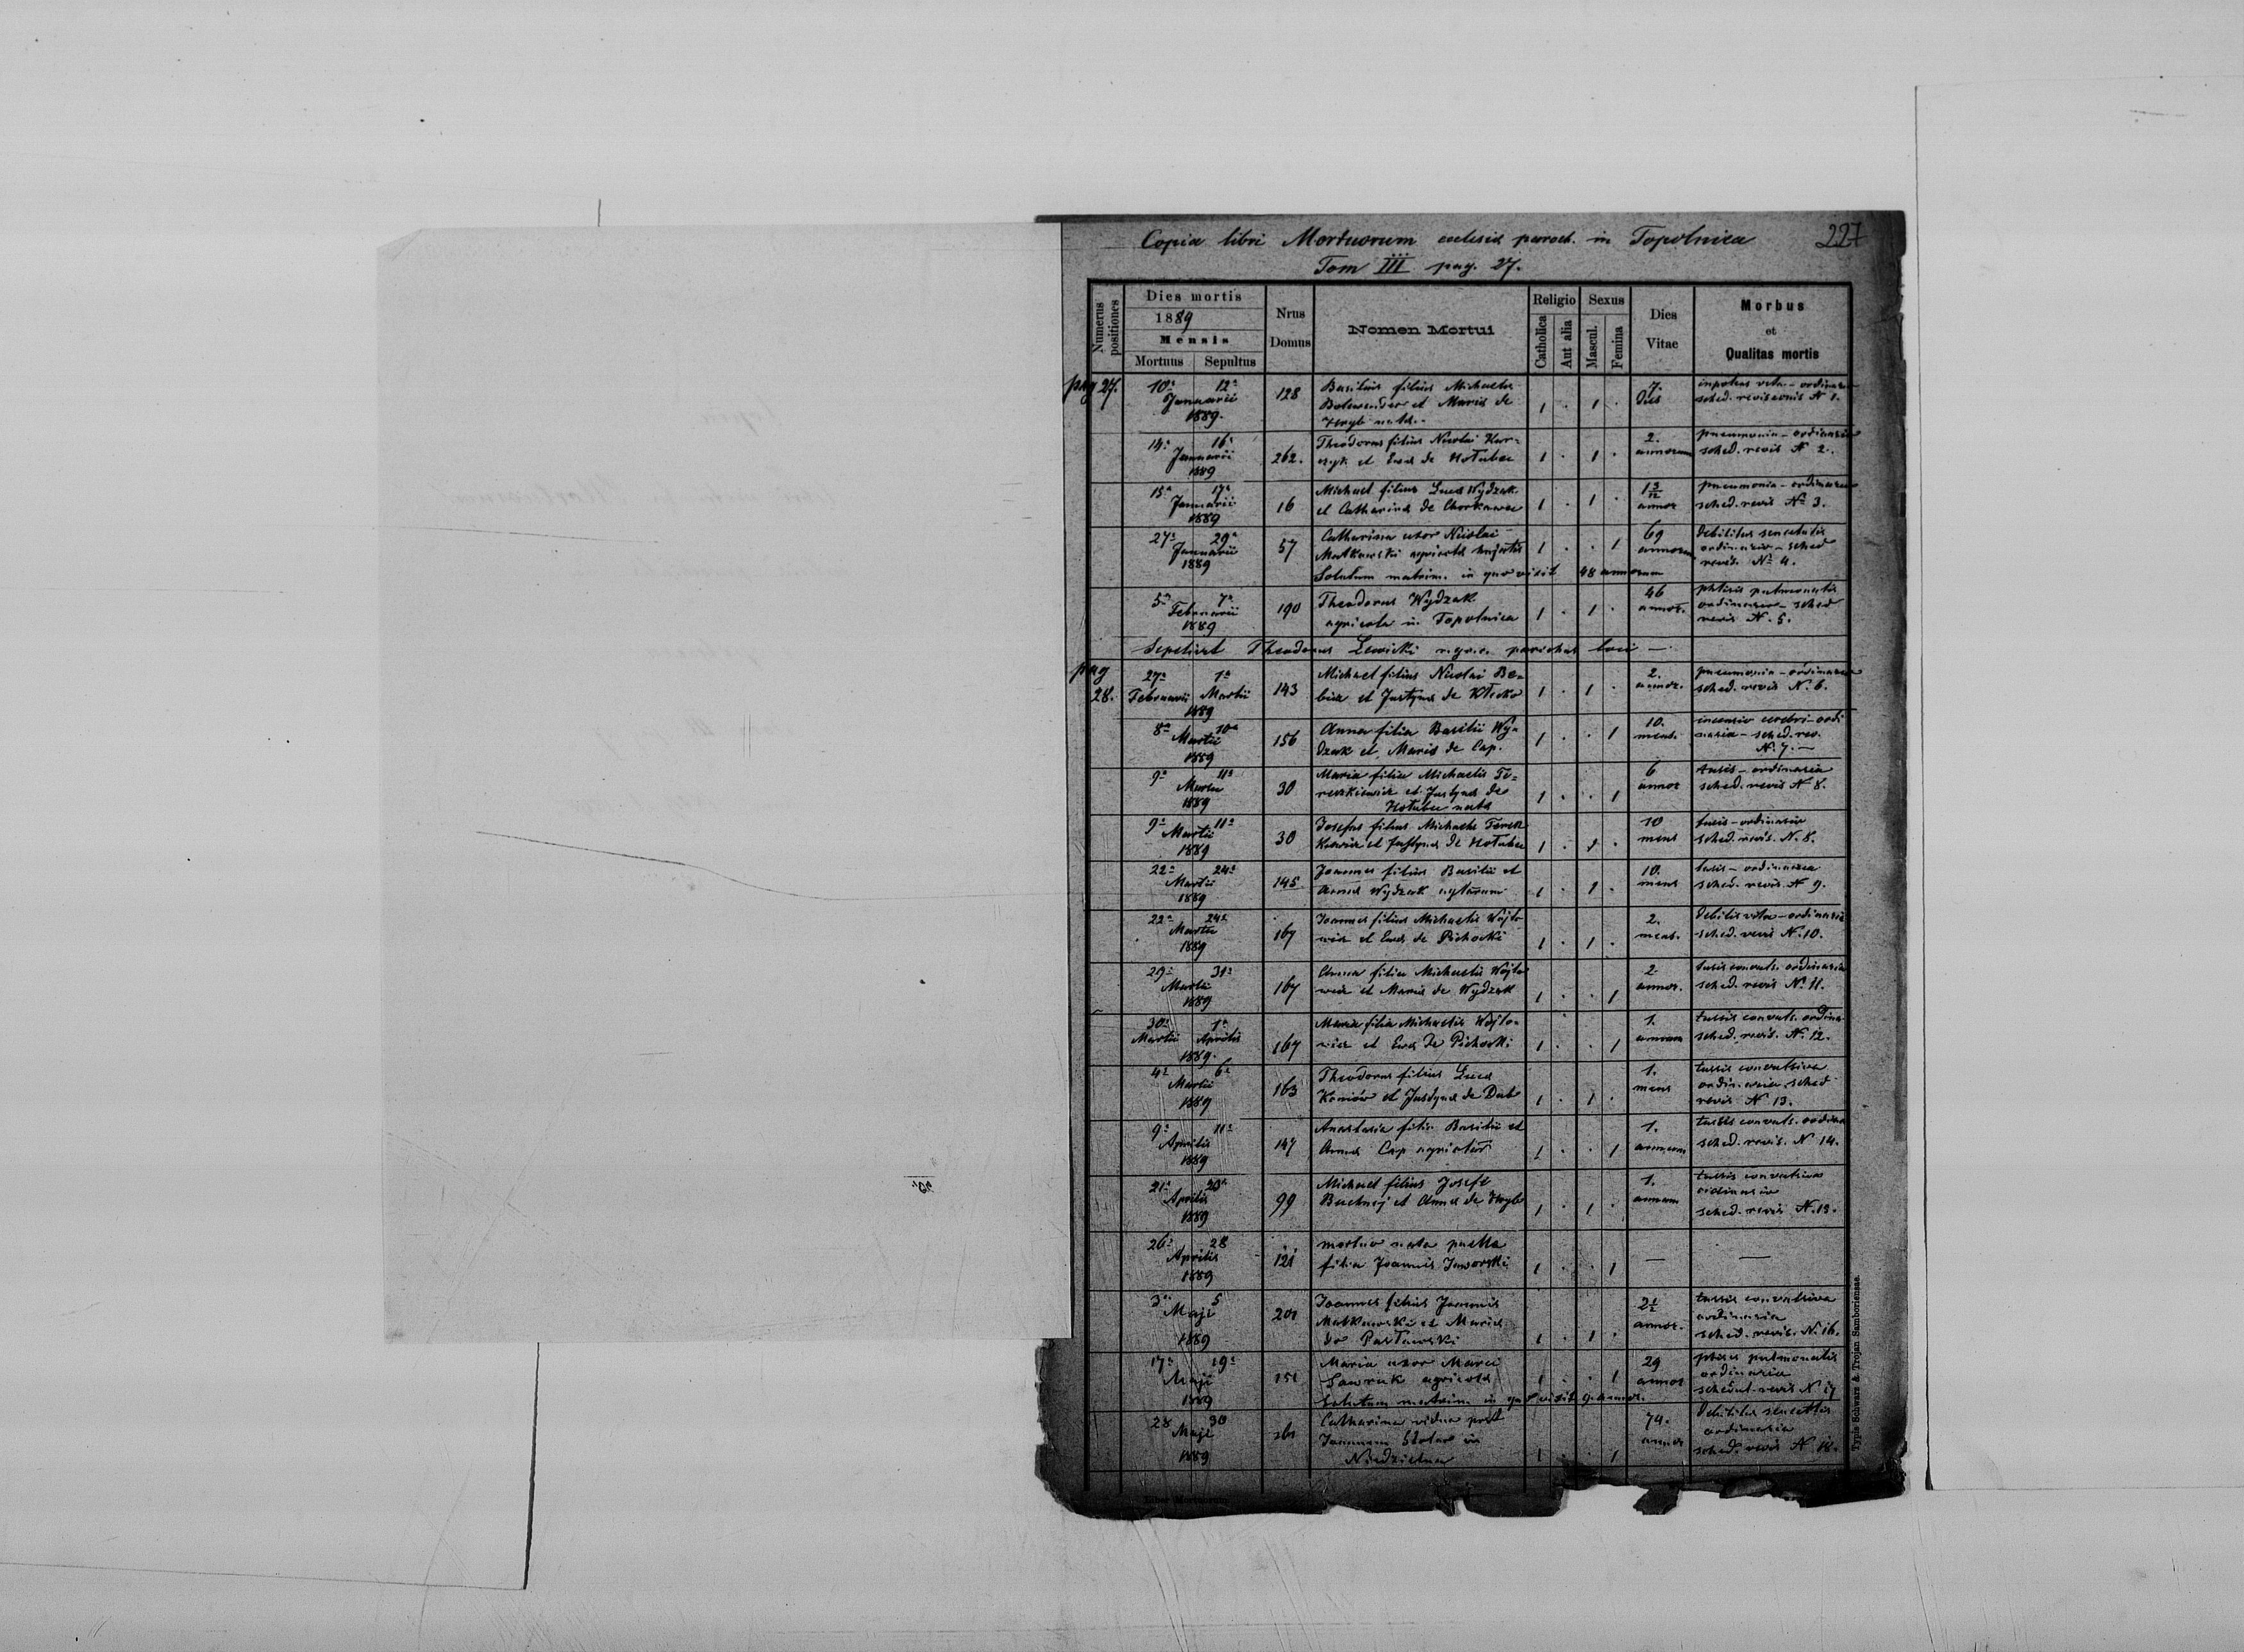 227
Copia libri Mortuorum ecclesia paroch. in Topolnica
Tom III pag. 27.
Numerus positiones
Dies mortis
1889
Mensis
Mortuus Sepultus
Nrus Domus
Nomen Mortui
Religio
Catholica Aut alia
Sexus
Mascul. Femina
Dies Vitae
Morbus
et
Qualitas mortis
pag 27.
10a 12a Januarii 1889. 128
Basilius filius Michaelis
et Maria de
1 . 1 . 7. dies
sched. revisionis N 1.
14a 16a Januarii 1889 262.
Theodorus filius Nicolai Kur-
czyk et Eva de Hołubec
1 . 1 . 2. annorum
pneumonia - ordinaria
sched. revis N 2.
15a 17a Januarii 1889 16
Michael filius Luca Wydzak
et Catharina de
1 . 1 . annor
pneumonia - ordinaria
sched. revis No 3.
27a 29a Januarii 1889 57
Catharina uxor Nicolai
Matkowski agricola
Solutum matrim. in quo vixit 48 annorum
1 . . 1 69 annorum
debilitas senectutis
ordinaria - sched
revis. No 4.
5a 7a Februarii 1889 190
Theodorus Wydzak
agricola in Topolnica
1 . 1 . 46 annor.
phtisis pulmonalis
ordinaria - sched
revis N. 5.
Sepelivit Theodorus Lewicki r. gr. c. parochus loci —
pag 28.
27a Februarii 1a Martii 1889 143
Michael filius Nicolai Be-
et Justyna de Klecko
1 . 1 . 2. annor.
pneumonia - ordinaria
sched. revis N. 6.
8a 10a Martii 1889 156
Anna filia Basilii Wy-
dzak et Maria de Cap.
1 . . 1 10. mens.
cerebri - ordi
naria - sched. rev.
N. 7. —
9a 11a Martii 1889 30
Maria filia Michaelis Te-
reszkiewicz et Justyna de
Hołubec nata
1 . . 1 6 annor
tusis - ordinaria
sched. revis N 8.
9a 11a Martii 1889 30
Josefus filius Michaelis Teresz
kiewicz et Justyna de Hołubec
1 . 1 . 10 mens
tusis - ordinaria
sched. revis. N. 8.
22a 24a Martii 1889 145
Joannes filius Basilii et
Anna Wydzak
1 . 1 . 10. mens
tusis - ordinaria
sched. revis. N 9.
22a 24a Martii 1889 167
Joannes filius Michaelis Wojto
wicz et Eva de Pichocki
1 . 1 . 2. mens.
debilis vita - ordinaria
sched. revis N. 10.
29a 31a Martii 1889 167
Anna filia Michaelis Wojto
wicz et Maria de Wydzak
1 . . 1 2. annor.
tusis convuls. ordinaria
sched. revis N. 11.
30a Martii 1a Aprilis 1889. 167
Maria filia Michaelis Wojto-
wicz et Eva de Pichocki
1 . . 1 1. annum
tussis convuls. ordina
sched. revis. N. 12.
4a 6a Martii 1889 163
Theodorus filius Luca
Koniów et Justyna de Dub
1 . 1 . 1. mens
tussis convulsiva
ordinaria sched
revis N 13.
9a 11a Aprilis 1889 147
Anastasia filia Basilii et
Anna Cap agricolar
1 . . 1 1. annum
tussis convuls. ordina
sched. revis. N 14.
21a Aprilis 1889 99
Michael filius Josefi
et Anna de Hryb
1 . 1 . 1. annum
tussis convulsiva
ordinaria
sched. revis N. 15.
26a 28 Aprilis 1889 121
mortuo nata puella
filia Joannis Jaworski
1 . . 1 — —
3a 5 Maji 1889 201
Joannes filius Joannis
Matkowski et Maria
de Pasławski
1 . 1 . 2½ annor.
tussis convulsiva
ordinaria
sched. revis. N. 16.
17a 19a Maji 1889 151
Maria uxor Marci
Sawruk agricola
Solutum matrim. in quo vixit 9 annor.
1 . . 1 29 annor
ptisis pulmonalis
ordinaria
schedul. revis N 17
28 30 Maji 1889
Catharina vidua post
Joannem in
Niedzielna
1 . . 1 74. annor
debilitas senectutis
ordinaria
sched. revis N 18.
Typis Schwarz & Trojan Samboriensae.